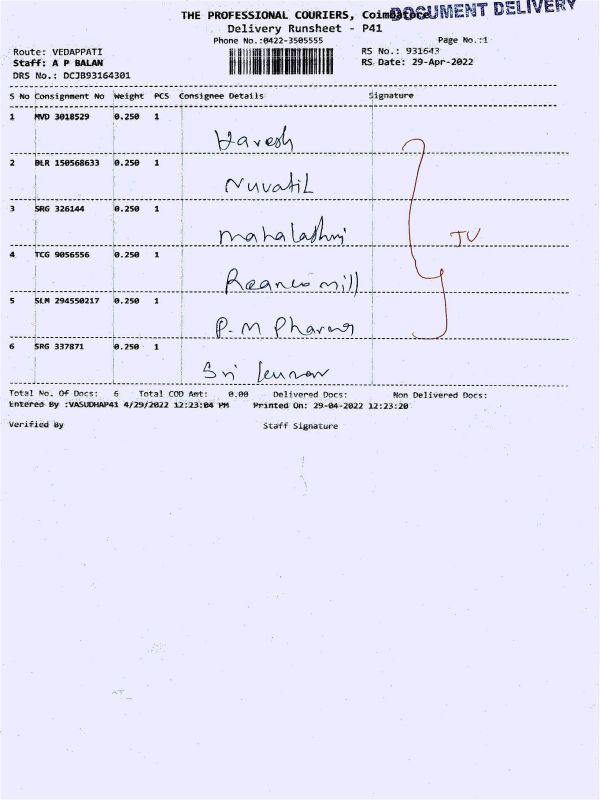 THE PROFESSIONAL COURIERS, Coimbatore
DOCUMENT DELIVERY
Delivery Runsheet - P41
Phone No.:0422-3505555 Page No.:1
Route: VEDAPPATI RS No.: 931643
Staff: A P BALAN RS Date: 29-Apr-2022
DRS No.: DCJB93164301
S No Consignment No Weight PCS Consignee Details Signature
1 MVD 3018529 0.250 1
Haresh
2 BLR 150568633 0.250 1
Nuvatil
3 SRG 326144 0.250 1
mahalaxhmi
4 TCG 9056556 0.250 1
mill
5 SLM 294550217 0.250 1
P.M Pharma
6 SRG 337871 0.250 1
Sri
Total No. Of Docs: 6 Total COD Amt: 0.00 Delivered Docs: Non Delivered Docs:
Entered By :VASUDHAP41 4/29/2022 12:23:04 PM Printed On: 29-04-2022 12:23:20
Verified By Staff Signature